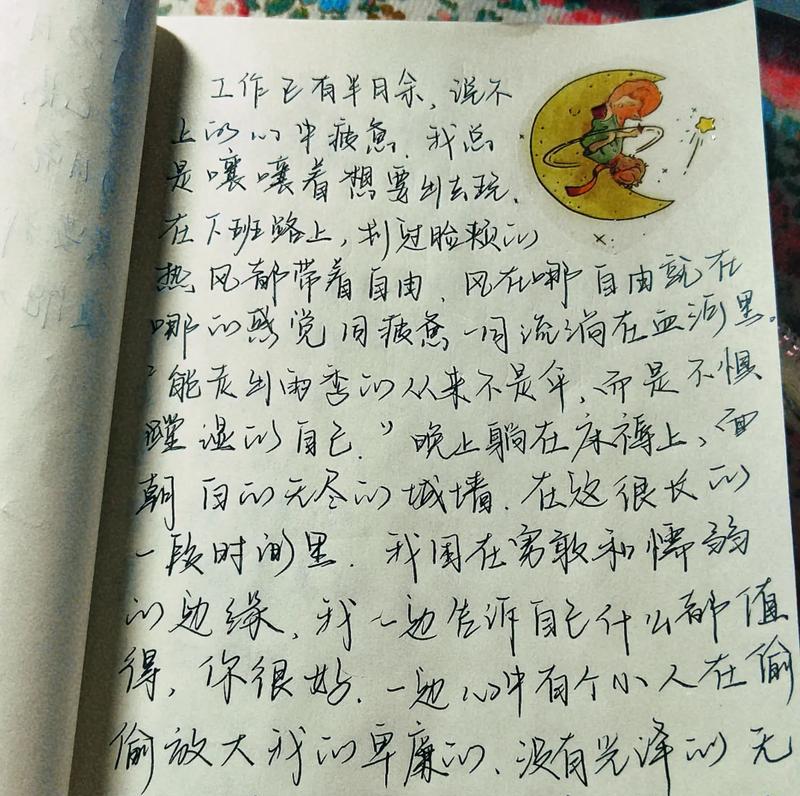 工作已有半月余，说不
上的心中疲惫．我总
是嚷嚷着想要出去玩．
在下班路上，刮过脸颊的
热风都带着自由．风在哪自由就在
哪的感觉同疲惫一同流淌在血河里。
“能走出雨季的从来不是伞，而是不惧
湿的自己．”晚上躺在床褥上、面
朝白的无尽的城墙．在这很长的
一段时间里．我困在勇敢和懦弱
的边缘，我一边告诉自己什么都值
得，你很好．一边心中有个小人在偷
偷放大我的卑廉的、没有光泽的无